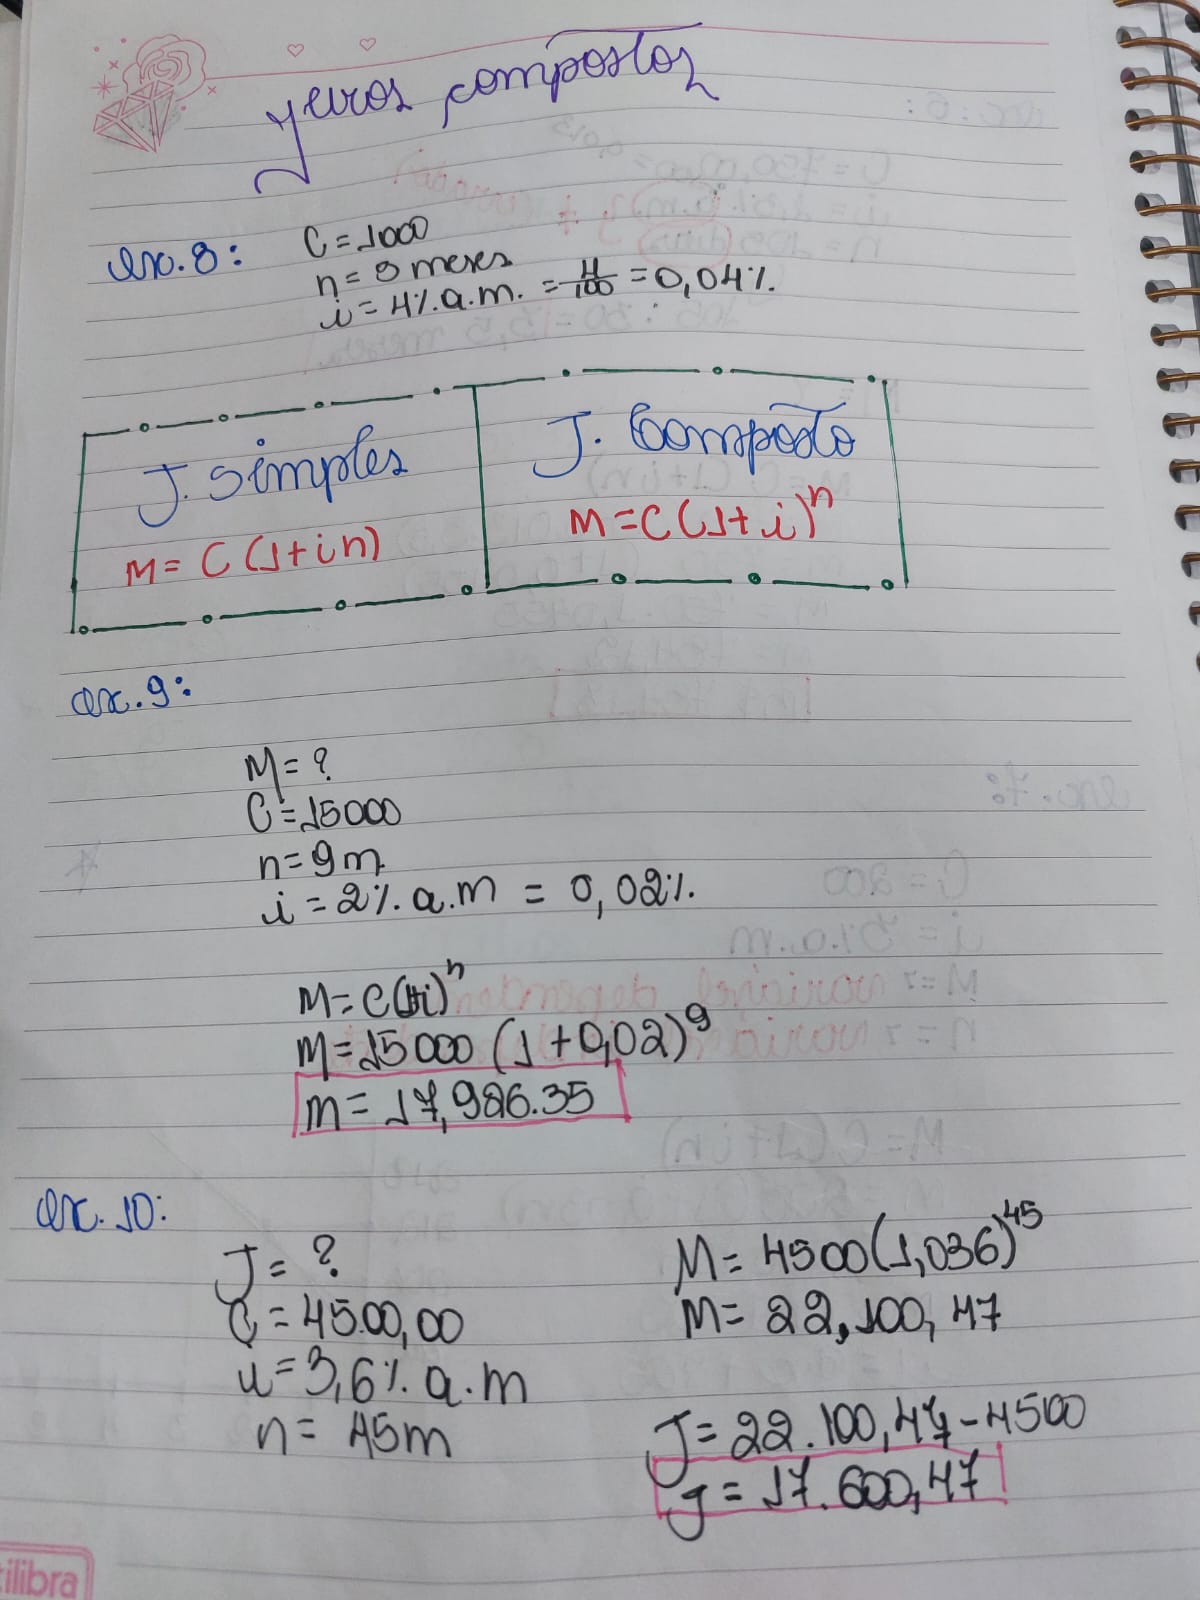 Juros compostos
ex. 8:
C = 1000
n = 8 meses
i = 4% a.m. = 4/100 = 0,04%
J. Simples
M = C (1 + in)
J. Composto
M = C (1 + i)ⁿ
ex. 9:
M = ?
C = 15000
n = 9 m
i = 2% a.m = 0,02%
M = C(1+i)ⁿ
M = 15000 (1 + 0,02)⁹
M = 17,926.35
ex. 10:
J = ?
C = 4500,00
i = 3,6% a.m
n = 45m
M = 4500(1,036)⁴⁵
M = 22,100,47
J = 22.100,47 - 4500
J = 17.600,47
ilibra